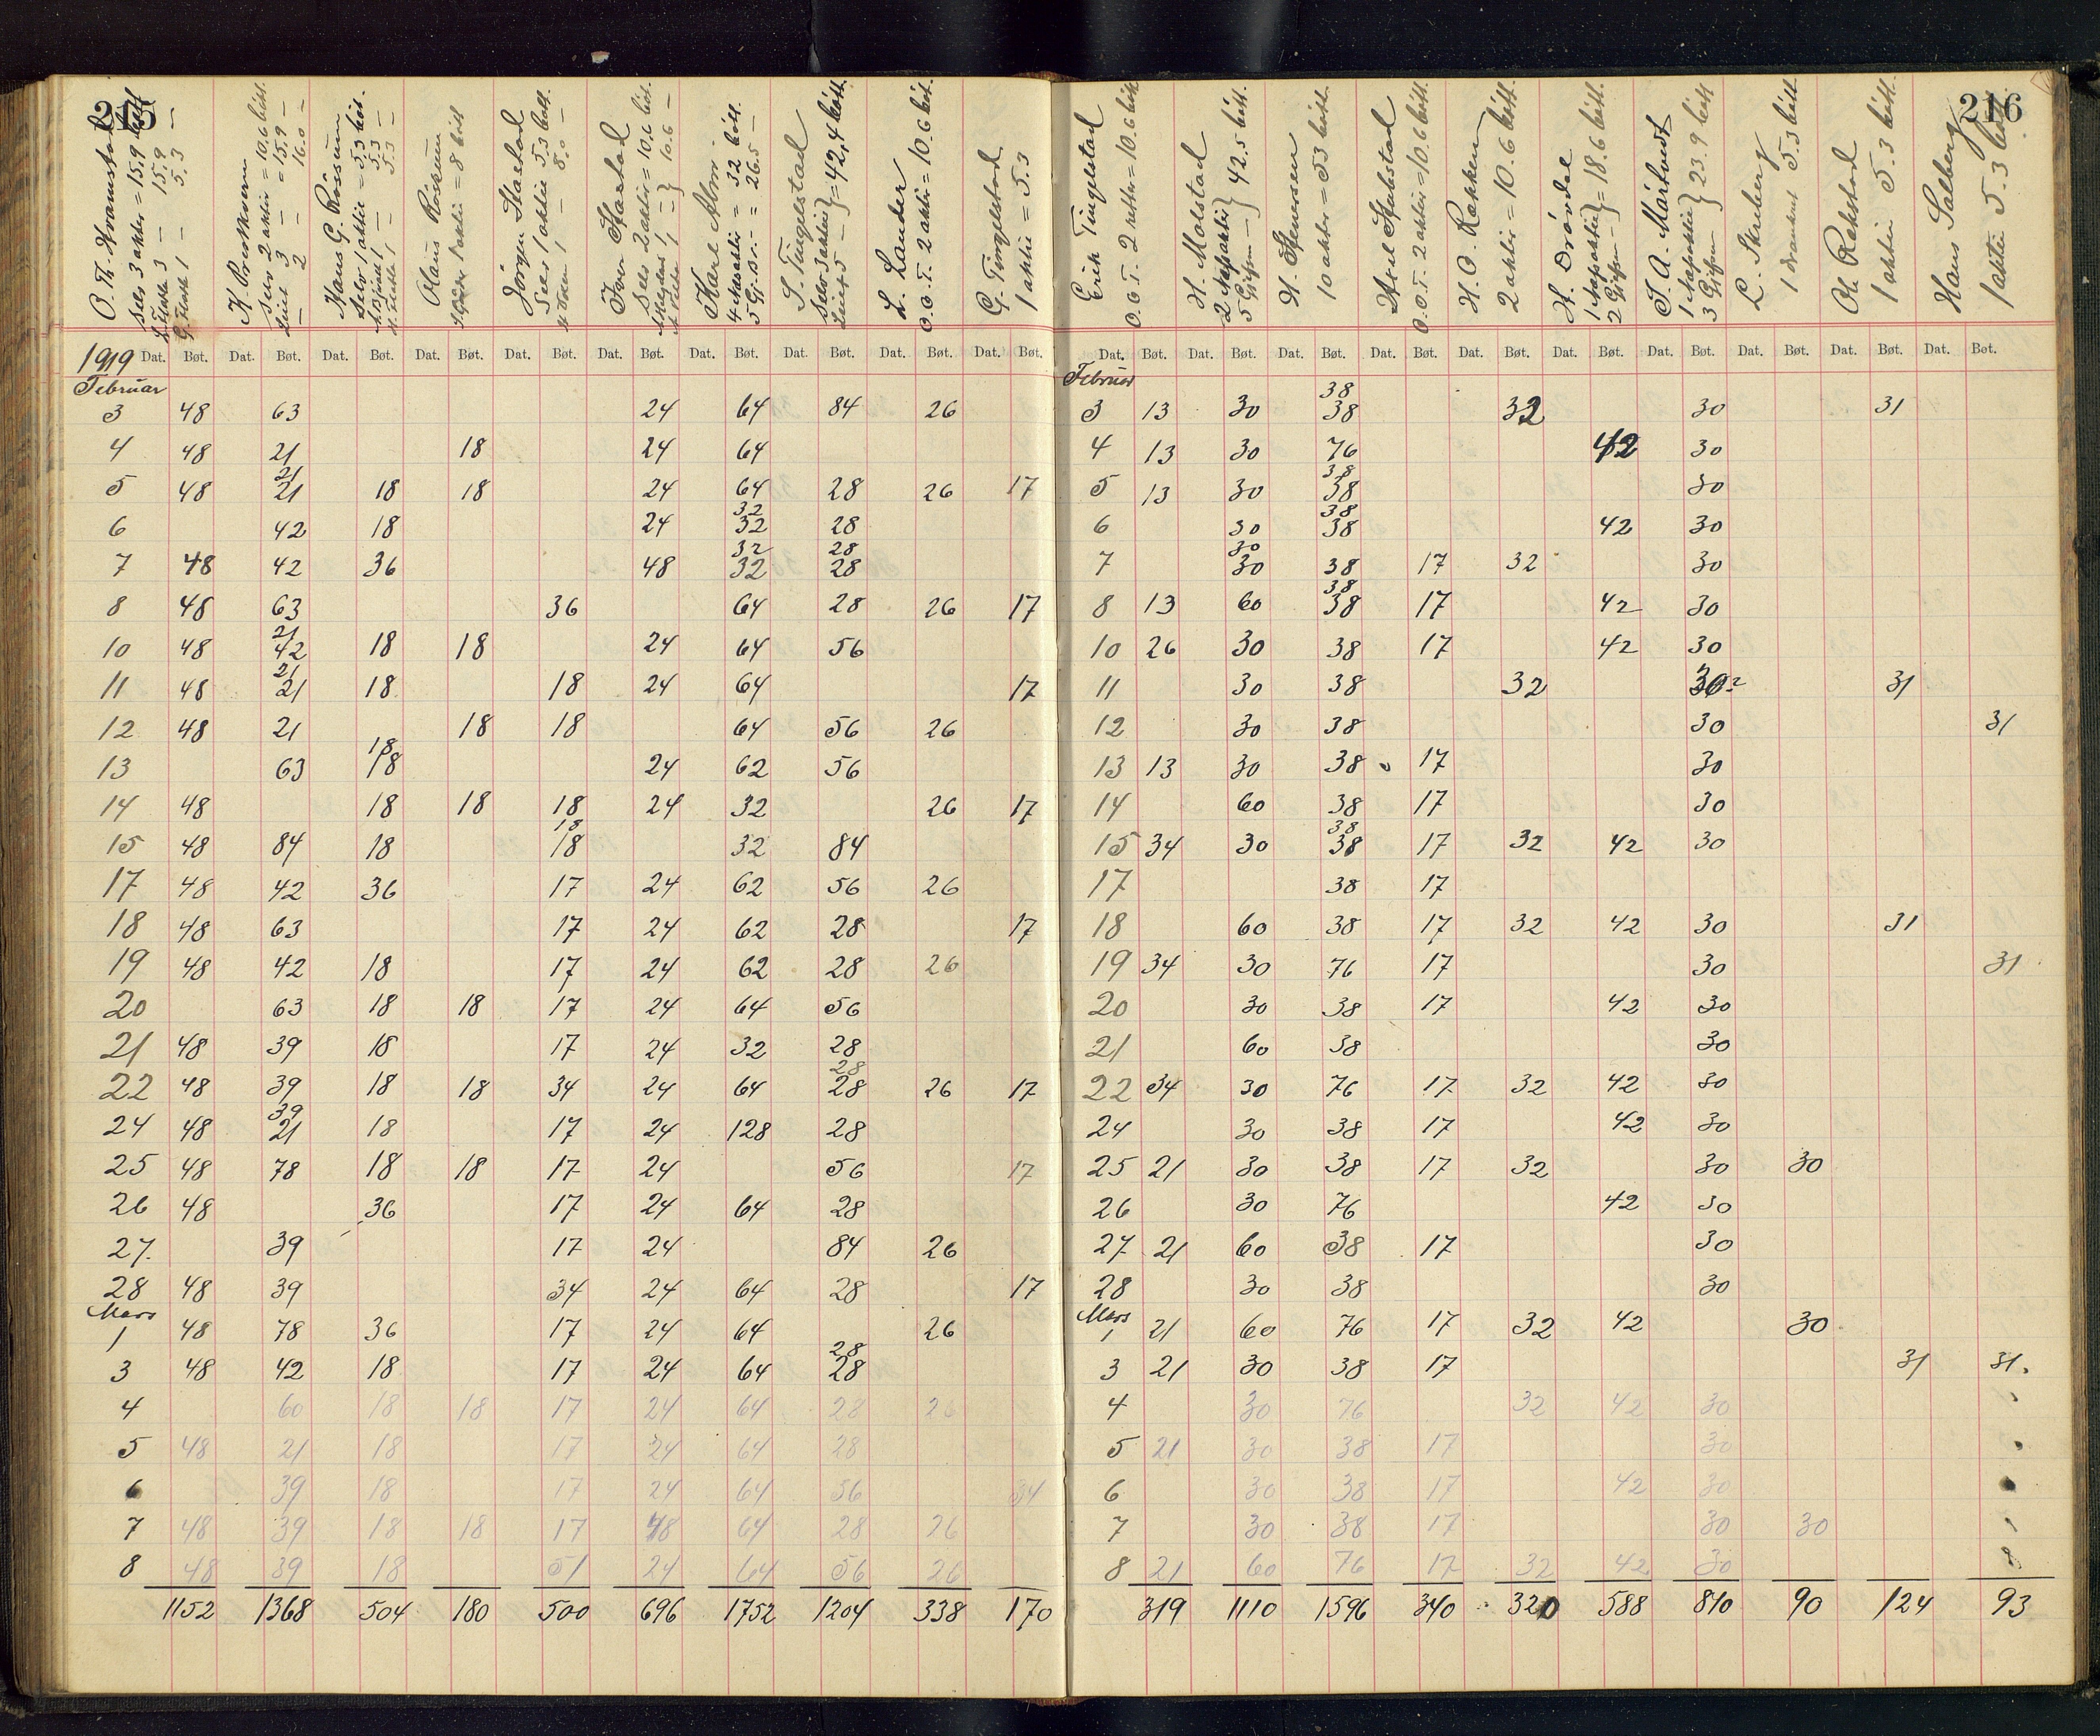 215
O. Th. Kramstad
Selv 3 aktier = 15.9 bött
3 — 15.9 —
1 — 5.3 —
K.
Selv 2 aktier = 10.6 bött.
3 — = 15.9 —
2 — 16.0 —
Hans G. Rossum
Selv 1 aktie = 5.3 böt.
1 — 5.3 —
1 — 5.3 —
Olaus Röskum
1 aktie = 8 bött
Jörgen Stadstad
Selv 1 aktie 5.3 bött.
1 — 8.0 —
Iver
Selv 2 aktier = 10.6 böt.
1 — } 10.6 —
Karl Moe.
4 aktier = 32 bött.
5 — = 26.5 —
S. Tingelstad
Selv 3 aktier } = 42,4 bött.
5 —
L. Lander
O.O.T. 2 aktier = 10.6 böt.
G. Tingelstad
1 aktie = 5.3
1919 Dat. Bøt. Dat. Bøt. Dat. Bøt. Dat. Bøt. Dat. Bøt. Dat. Bøt. Dat. Bøt. Dat. Bøt. Dat. Bøt. Dat. Bøt.
Februar
3 48 63 24 64 84 26
4 48 21 18 24 64
21
5 48 21 18 18 24 64 28 26 17
32
6 42 18 24 32 28
32 28
7 48 42 36 48 32 28
8 48 63 36 64 28 26 17
21
10 48 42 18 18 24 64 56
21
11 48 21 18 18 24 64 17
12 48 21 18 18 64 56 26
18
13 63 18 24 62 56
14 48 18 18 18 24 32 26 17
18
15 48 84 18 18 32 84
17 48 42 36 17 24 62 56 26
18 48 63 17 24 62 28 17
19 48 42 18 17 24 62 28 26
20 63 18 18 17 24 64 56
21 48 39 18 17 24 32 28
28
22 48 39 18 18 34 24 64 28 26 17
39
24 48 21 18 17 24 128 28
25 48 78 18 18 17 24 56 17
26 48 36 17 24 64 28
27. 39 17 24 84 26
28 48 39 34 24 64 28 17
Mars
1 48 78 36 17 24 64 26
28
3 48 42 18 17 24 64 28
4 60 18 18 17 24 64 28 26
5 48 21 18 17 24 64 28
6 39 18 17 24 64 56 34
7 48 39 18 18 17 48 64 28 26
8 48 39 18 51 24 64 56 26
1152 1368 504 180 500 696 1752 1204 338 170
216
Erik Tingelstad
O.O.T. 2 = 10.6 böt
H. Molstad
2 aktie } 42.5 bött.
5 —
H. Stenersen
10 aktier = 53 bött.
Axel
O.O.T. 2 aktier = 10.6 bött.
H. O. Rækken
2 aktier = 10.6 bött.
H. Drövdal
1 aktie } = 18.6 bött.
2 —
S. A. Mårtvedt
1 aktie } 23.9 bött
3
L. Skreberg
1 5.3 bött.
Ole Rækstad
1 aktie 5.3 bött.
Hans Salberg
1 aktie 5.3 bött
Dat. Bøt. Dat. Bøt. Dat. Bøt. Dat. Bøt. Dat. Bøt. Dat. Bøt. Dat. Bøt. Dat. Bøt. Dat. Bøt. Dat. Bøt.
Februar
38
3 13 30 38 32 30 31
4 13 30 76 42 30
38
5 13 30 38 30
38
6 30 38 42 30
30
7 30 38 17 32 30
38
8 13 60 38 17 42 30
10 26 30 38 17 42 30
11 30 38 32 30 31
12 30 38 30 31
13 13 30 38 17 30
14 60 38 17 30
38
15 34 30 38 17 32 42 30
17 38 17
18 60 38 17 32 42 30 31
19 34 30 76 17 30 31
20 30 38 17 42 30
21 60 38 30
22 34 30 76 17 32 42 30
24 30 38 17 42 30
25 21 30 38 17 32 30 30
26 30 76 42 30
27 21 60 38 17 30
28 30 38 30
Mars
1 21 60 76 17 32 42 30
3 21 30 38 17 31 31.
4 30 76 32 42 30
5 21 30 38 17 30
6 30 38 17 42 30
7 30 38 17 30 30
8 21 60 76 17 32 42 30
319 1110 1596 340 320 588 810 90 124 93